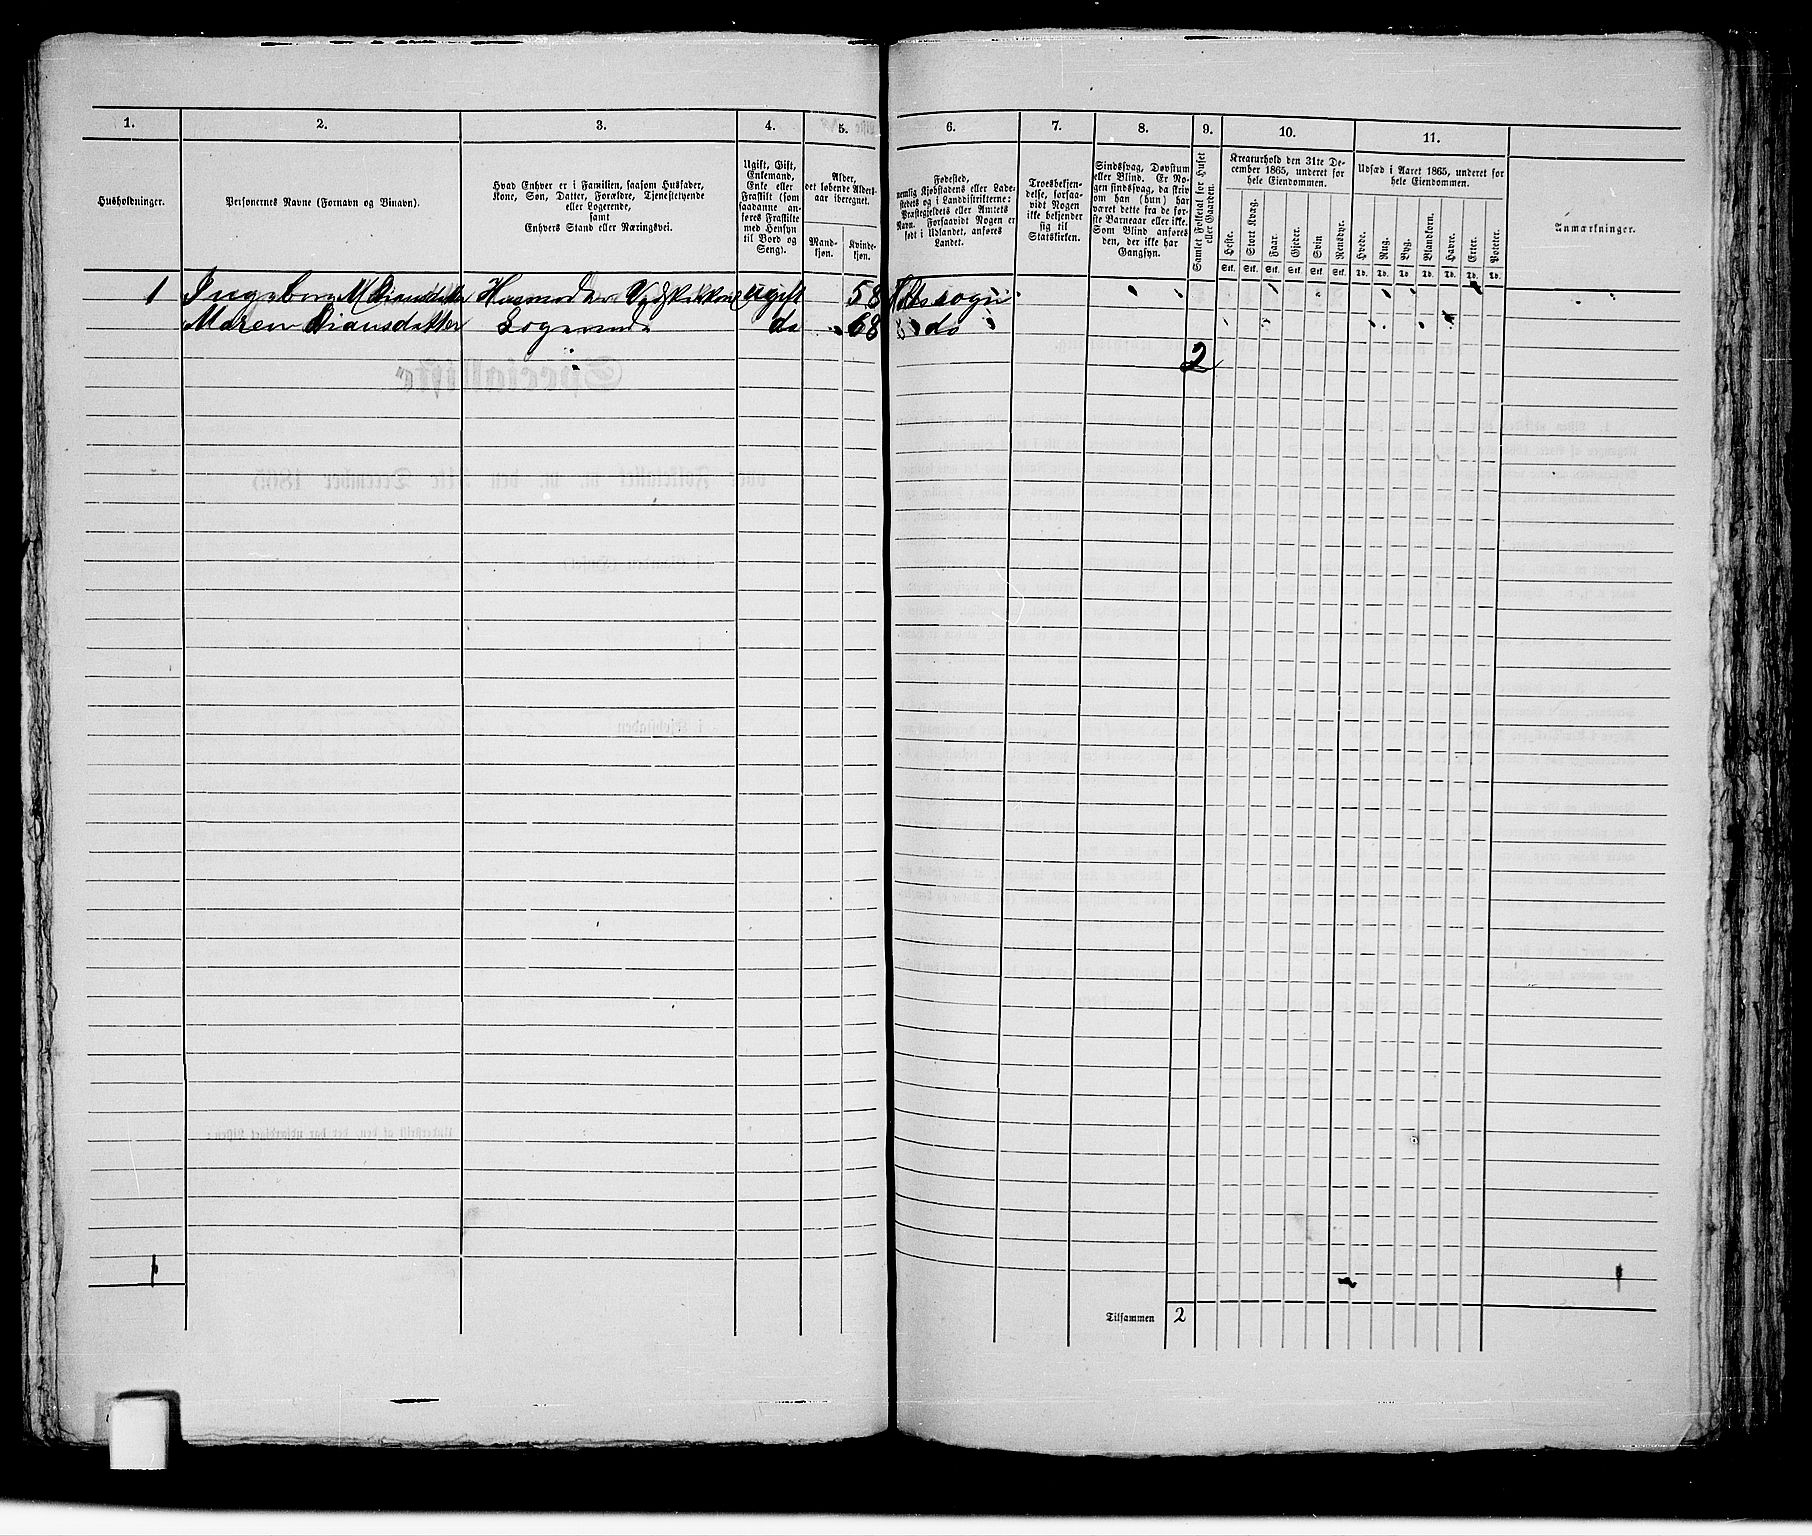 1. 2. 3. 4. 5. 6. 7. 8. 9. 10. 11.
Husholdninger.
Personernes Navne (Fornavn og Binavn).
Hvad Enhver er i Familien, saasom Husfader,
Kone, Søn, Datter, Forældre, Tjenestetyende
eller Logerende,
samt
Enhvers Stand eller Næringsvei.
Ugift, Gift,
Enkemand,
Enke eller
Fraskilt (som
saadanne an-
føres Fraskilte
med Hensyn
til Bord og
Seng).
Alder,
det løbende Alders-
aar iberegnet.
Mand-
kjøn.
Kvinde-
kjøn.
Fødested,
nemlig Kjøbstadens eller Lade-
stedets og i Landdistrikterne:
Præstegjeldets eller Amtets
Navn. Forsaavidt Nogen er
født i Udlandet, anføres
Landet.
Troesbekjen-
delse, forsaa-
vidt Nogen
ikke bekjender
sig til
Statskirken.
Sindssvag, Døvstum
eller Blind. Er No-
gen sindssvag, da skriv
om han (hun) har
været dette fra de før-
ste Barneaar eller ikke.
Som Blind anføres
den, der ikke har
Gangsyn.
Samlet Folketal for Huset
eller Gaarden.
Kreaturhold den 31te De-
cember 1865, underet for
hele Eiendommen.
Heste. Stort Kvæg. Faar. Gjeder. Svin Rensdyr.
Stk. Stk. Stk. Stk. Stk. Stk.
Udsæd i Aaret 1865, underet for
hele Eiendommen.
Hvede. Rug. Byg. Blandkorn. Havre. Erter. Poteter.
Td. Td. Td. Td. Td. Td. Td.
Anmærkninger.
1 Ingeborg M Husmoder ugift 58 Holt sogn
Maren Logerende do 68 do
2
Tilsammen 2